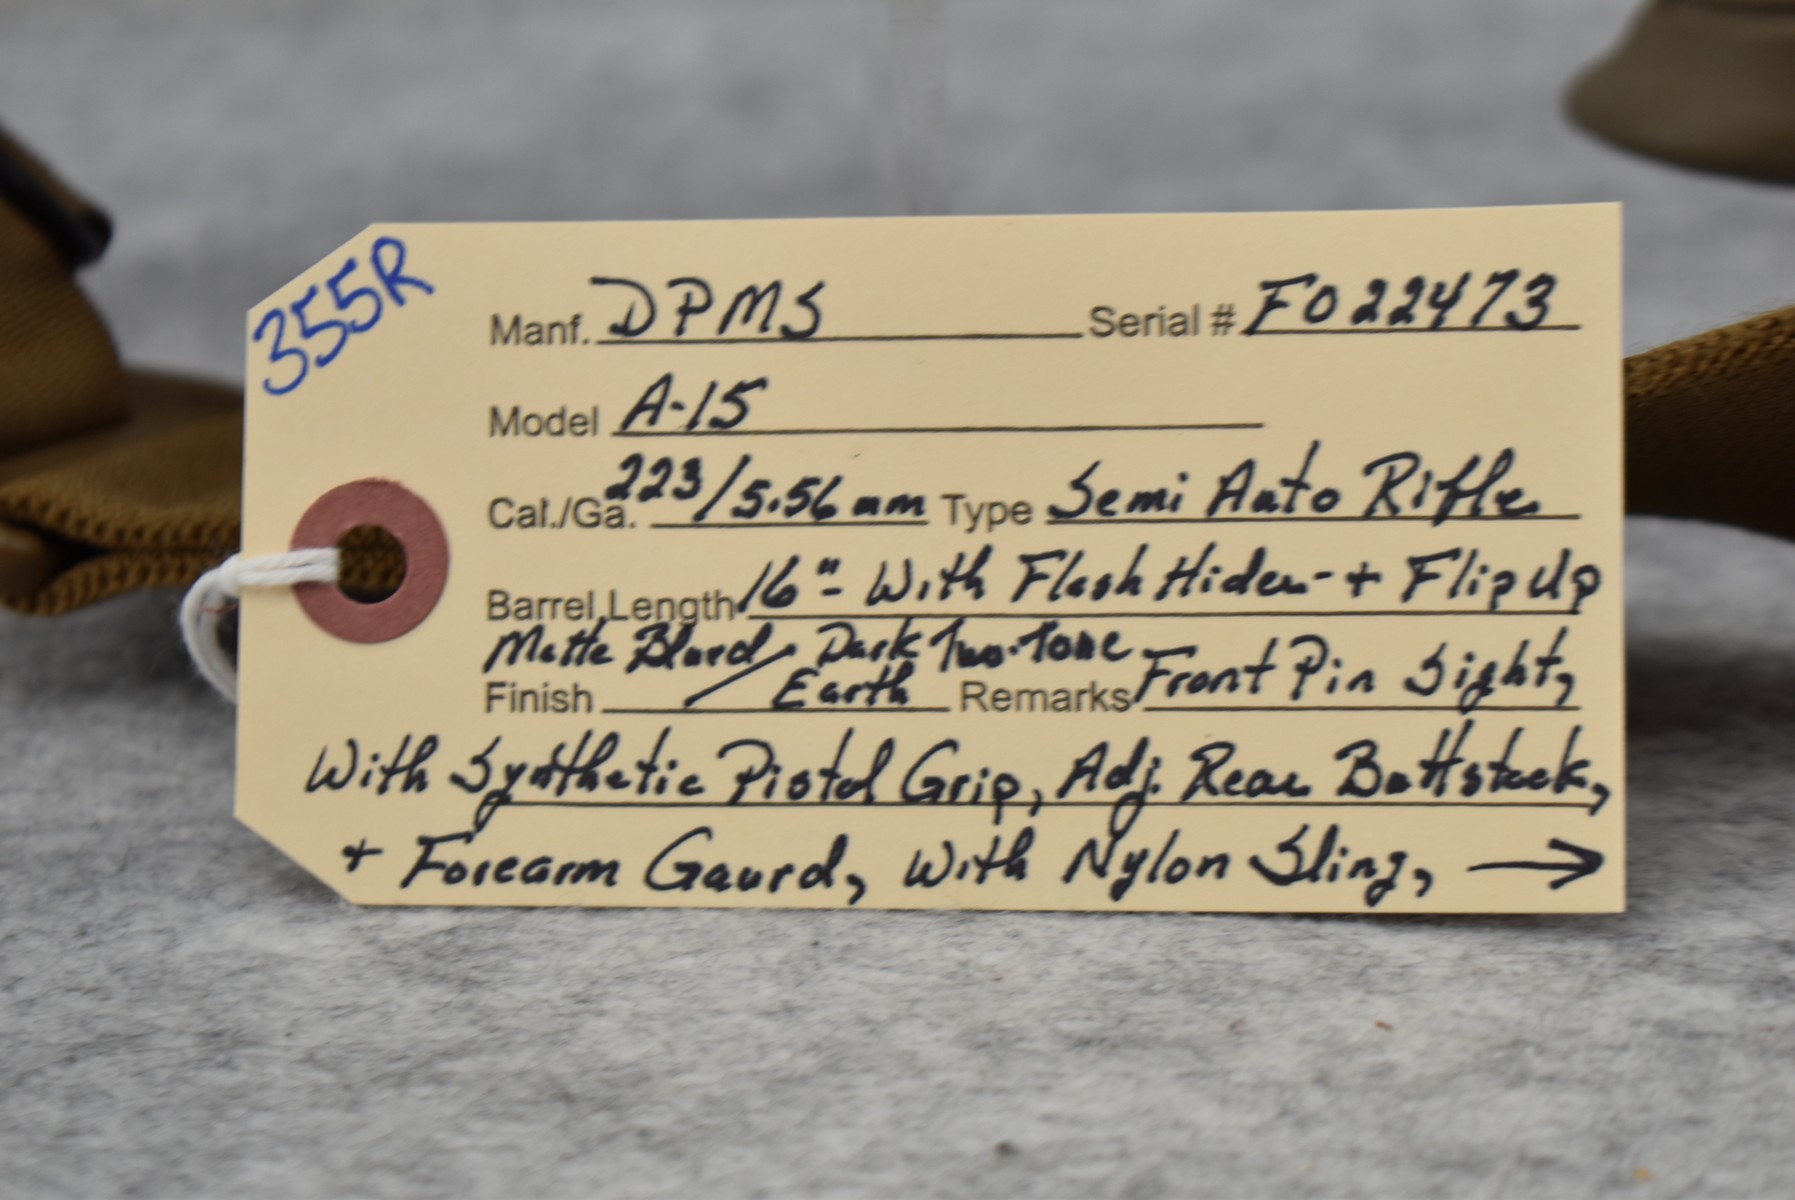 355R
Manf. DPMS Serial # F022473
Model A-15
Cal./Ga. 223/5.56mm Type Semi Auto Rifle
Barrel Length 16"- With Flash Hider - + Flip Up
Matte Blued / Dark Two-Tone
Finish Earth Remarks Front Pin Sight,
With Synthetic Pistol Grip, Adj. Rear Buttstock,
+ Forearm Gaurd, With Nylon Sling, →